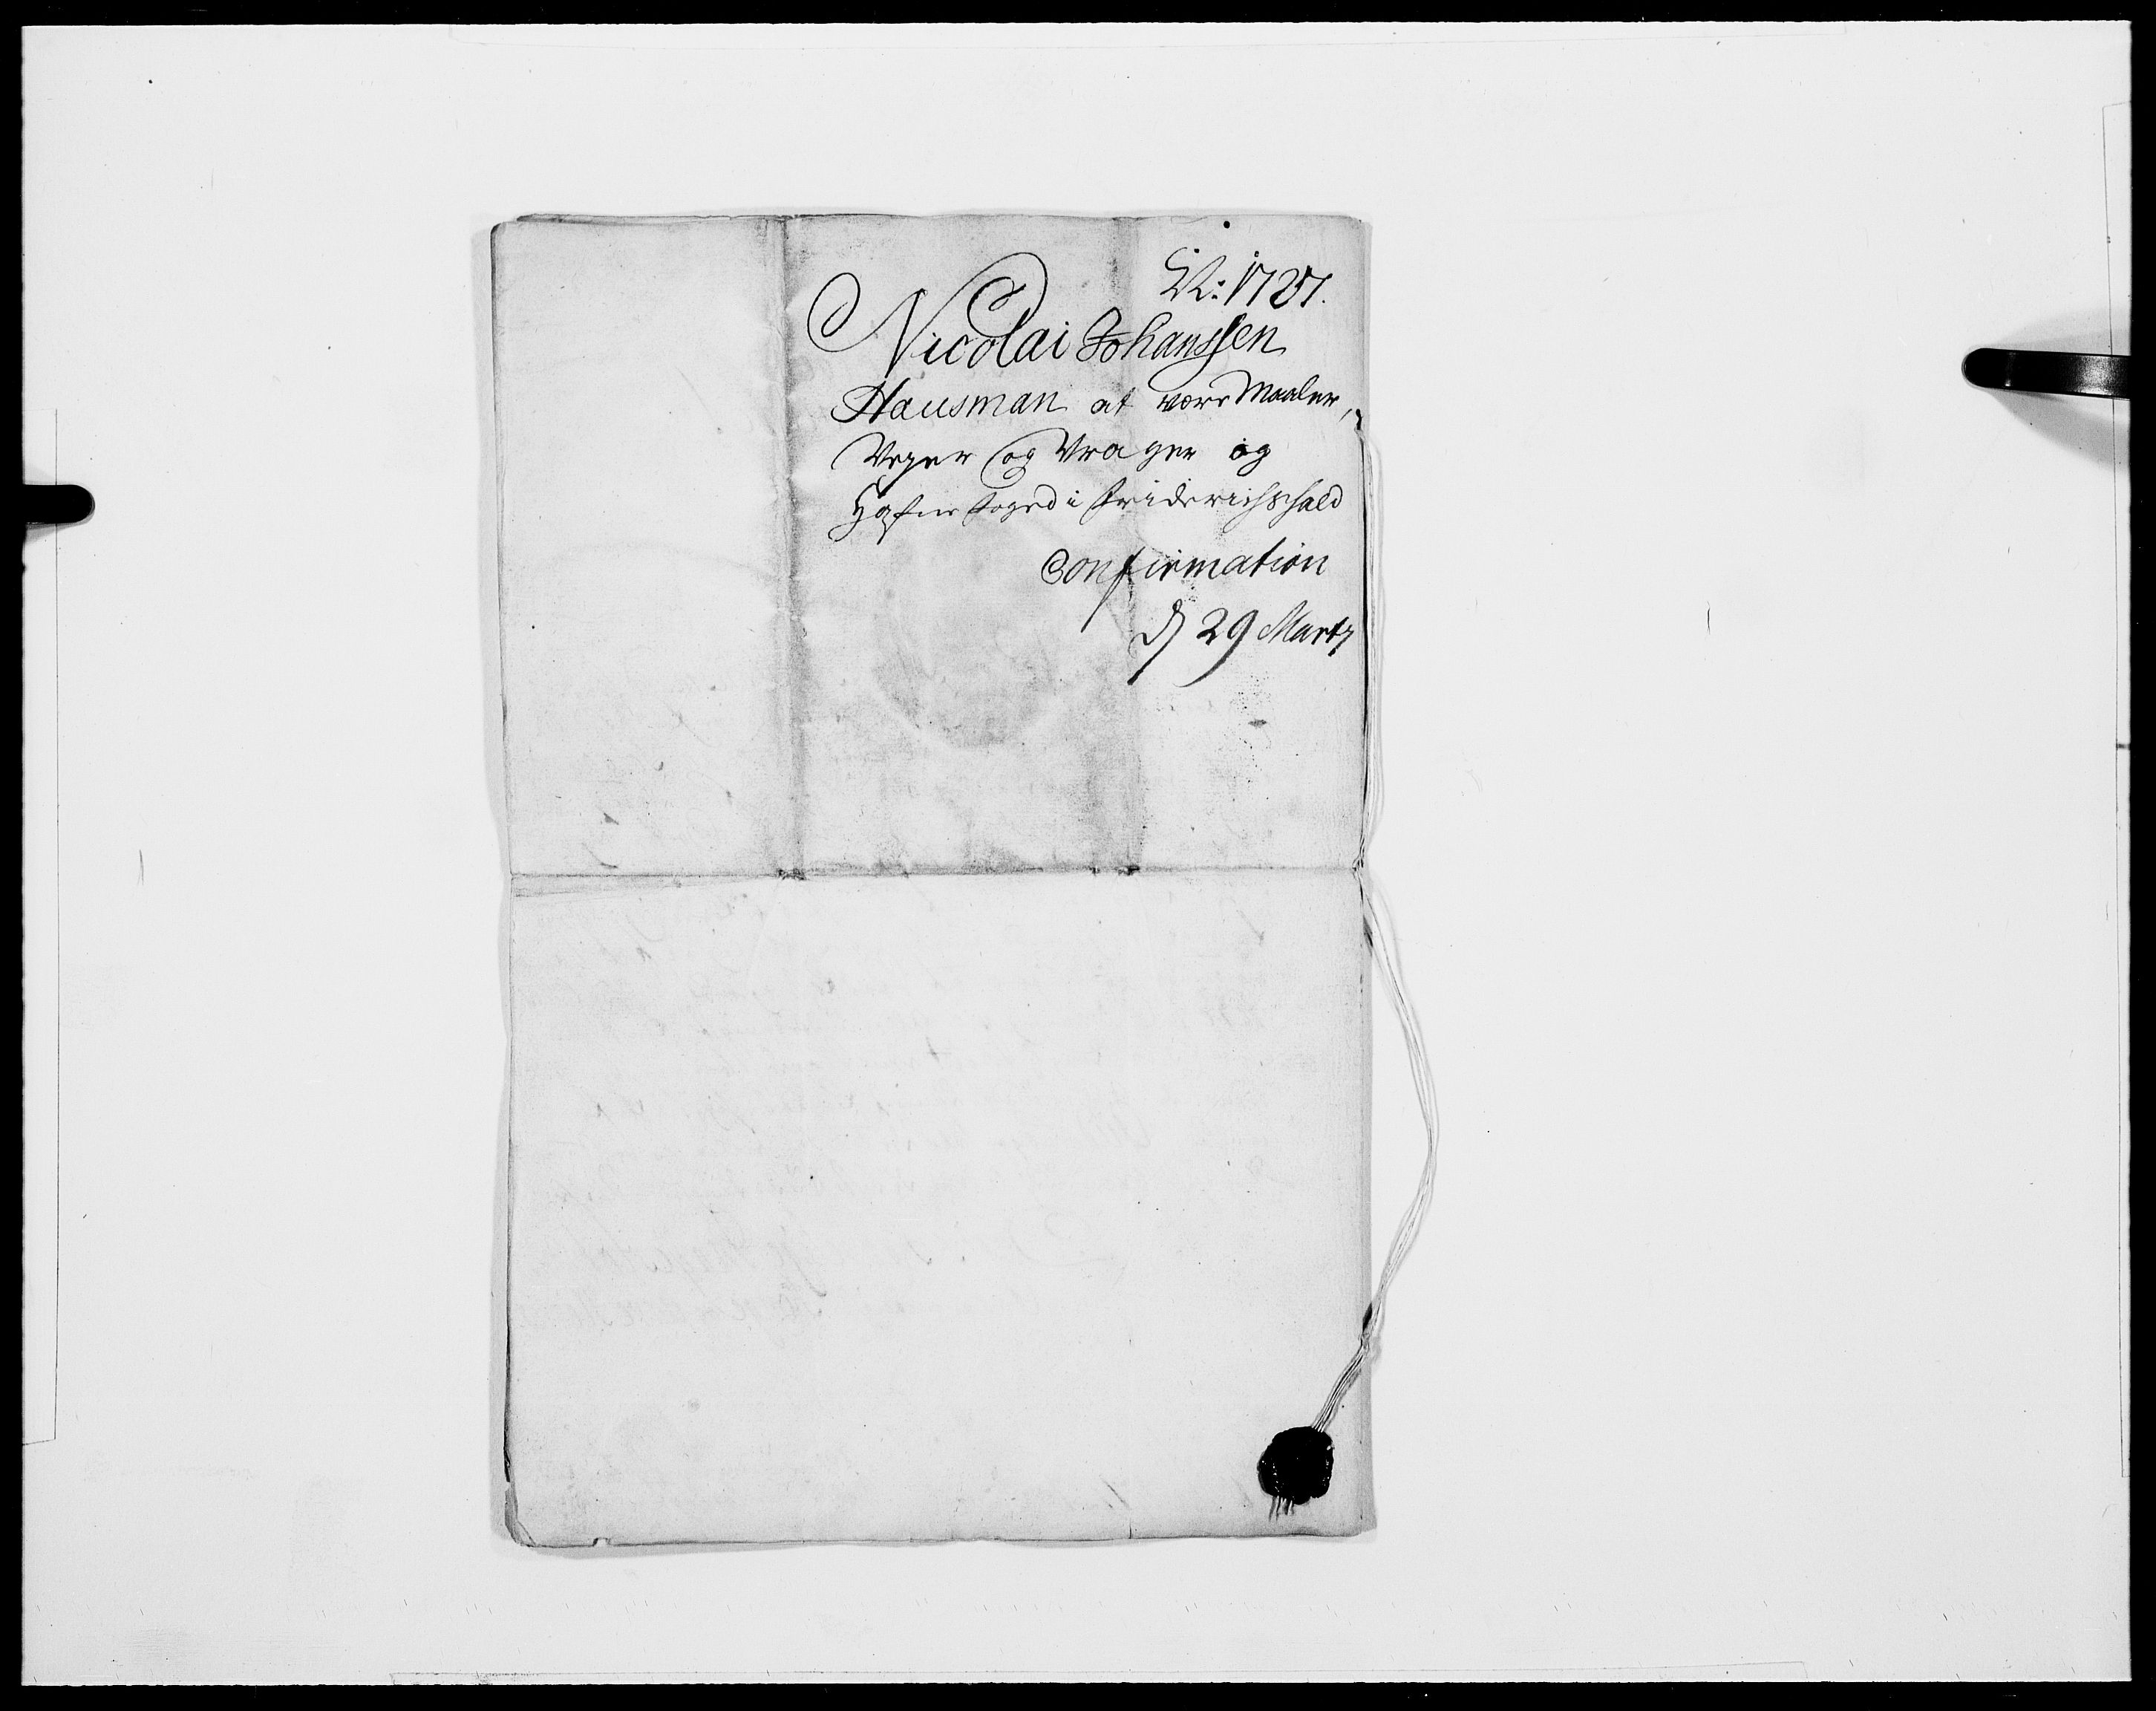 No: 1727.
Nicolai Johanssen
Hausman at være Maaler,
Veyer og Vrager og
Hafnefoged i Friderichshald
Confirmation
d 29 Marty